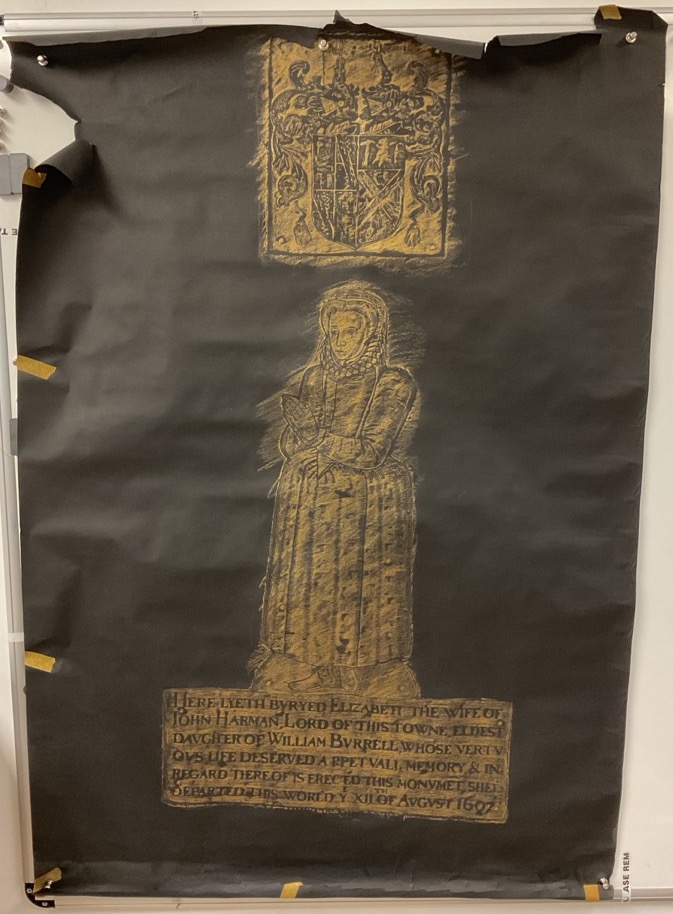 HERE LYETH BVRYED ELIZABETH THE WIFE OF
IOHN HARMAN LORD OF THIS TOWNE, ELDEST
DAVGHTER OF WILLIAM BVRRELL WHOSE VERTV
OVS LIFE DESERVED A PPETVALL MEMORY & IN
REGARD THEREOF IS ERECTED THIS MONVMET, SHEE
DEPARTED THIS WORLD Y XII OF AVGVST 160
ASE REM